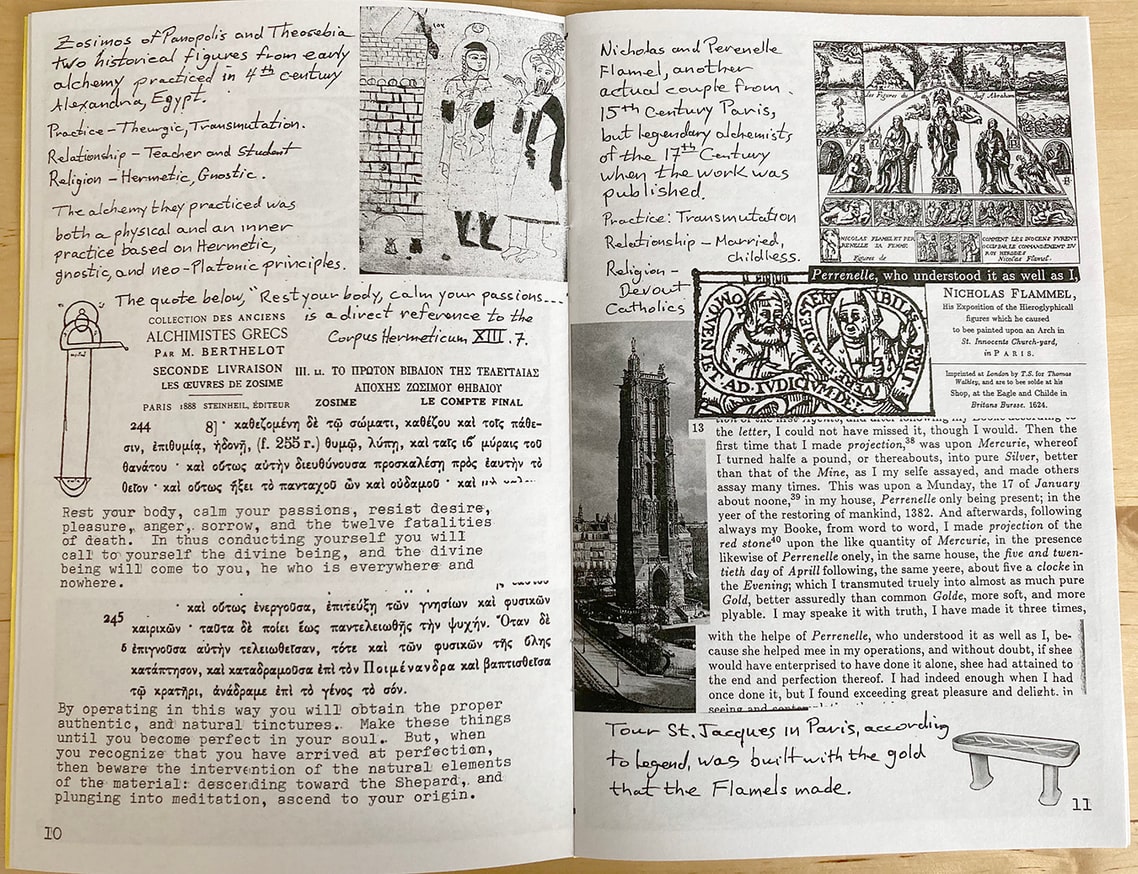 Zosimos of Panopolis and Theosebia
two historical figures from early
alchemy practiced in 4th century
Alexandria, Egypt.
Practice - Theurgic, Transmutation.
Relationship - Teacher and Student
Religion - Hermetic, Gnostic.
The alchemy they practiced was
both a physical and an inner
practice based on Hermetic,
gnostic, and neo-Platonic principles.
The quote below, "Rest your body, calm your passions...
is a direct reference to the
Corpus Hermeticum XIII. 7.
COLLECTION DES ANCIENS
ALCHIMISTES GRECS
PAR M. BERTHELOT
SECONDE LIVRAISON
LES ŒUVRES DE ZOSIME
PARIS 1888 STEINHEIL, ÉDITEUR
III. LI. ΤΟ ΠΡΩΤΟΝ ΒΙΒΛΙΟΝ ΤΗΣ ΤΕΛΕΥΤΑΙΑΣ
ΑΠΟΧΗΣ ΖΩΣΙΜΟΥ ΘΗΒΑΙΟΥ
ZOSIME LE COMPTE FINAL
244 8] · καθεζομένη δὲ τῷ σώματι, καθέζου καὶ τοῖς πάθε-
σιν, ἐπιθυμίᾳ, ἡδονῇ, (f. 255 r.) θυμῷ, λύπῃ, καὶ ταῖς ιϐ μύραις τοῦ
θανάτου · καὶ οὕτως αὑτὴν διευθύνουσα προσκαλέσῃ πρὸς ἑαυτὴν τὸ
θεῖον · καὶ οὕτως ἥξει τὸ πανταχοῦ ὢν καὶ οὐδαμοῦ · καὶ
Rest your body, calm your passions, resist desire,
pleasure, anger, sorrow, and the twelve fatalities
of death. In thus conducting yourself you will
call to yourself the divine being, and the divine
being will come to you, he who is everywhere and
nowhere.
245 · καὶ οὕτως ἐνεργοῦσα, ἐπιτεύξῃ τῶν γνησίων καὶ φυσικῶν
καιρικῶν · ταῦτα δὲ ποίει ἕως παντελειωθῇς τὴν ψυχήν. Ὅταν δὲ
5 ἐπιγνοῦσα αὑτὴν τελειωθεῖσαν, τότε καὶ τῶν φυσικῶν τῆς ὕλης
κατάπτησον, καὶ καταδραμοῦσα ἐπὶ τὸν Ποιμένανδρα καὶ βαπτισθεῖσα
τῷ κρατῆρι, ἀνάδραμε ἐπὶ τὸ γένος τὸ σόν.
By operating in this way you will obtain the proper
authentic, and natural tinctures. Make these things
until you become perfect in your soul. But, when
you recognize that you have arrived at perfection,
then beware the intervention of the natural elements
of the material: descending toward the Shepard, and
plunging into meditation, ascend to your origin.
10
Nicholas and Perenelle
Flamel, another
actual couple from
15th Century Paris,
but legendary alchemists
of the 17th Century
when the work was
published.
Practice: Transmutation
Relationship - Married,
childless.
Religion -
Devout
Catholics
les Figures de Abraham
NICOLAS FLAMEL ET PER
RENELLE SA FEMME
Figures de
COMMENT LES INOCENS FVRENT
OCCIS PAR LE COMMANDEMENT DV
ROY HERODES
Nicolas Flamel.
Perrenelle, who understood it as well as I,
NICHOLAS FLAMMEL,
His Exposition of the Hieroglyphicall
figures which he caused
to bee painted upon an Arch in
St. Innocents Church-yard,
in PARIS.
Imprinted at London by T.S. for Thomas
Walkley, and are to bee solde at his
Shop, at the Eagle and Childe in
Britans Bursse. 1624.
13
the letter, I could not have missed it, though I would. Then the
first time that I made projection,38 was upon Mercurie, whereof
I turned halfe a pound, or thereabouts, into pure Silver, better
than that of the Mine, as I my selfe assayed, and made others
assay many times. This was upon a Munday, the 17 of January
about noone,39 in my house, Perrenelle only being present; in the
yeer of the restoring of mankind, 1382. And afterwards, following
always my Booke, from word to word, I made projection of the
red stone40 upon the like quantity of Mercurie, in the presence
likewise of Perrenelle onely, in the same house, the five and twen-
tieth day of Aprill following, the same yeere, about five a clocke in
the Evening; which I transmuted truely into almost as much pure
Gold, better assuredly than common Golde, more soft, and more
plyable. I may speake it with truth, I have made it three times,
with the helpe of Perrenelle, who understood it as well as I, be-
cause she helped mee in my operations, and without doubt, if shee
would have enterprised to have done it alone, shee had attained to
the end and perfection thereof. I had indeed enough when I had
once done it, but I found exceeding great pleasure and delight, in
seeing and
Tour St. Jacques in Paris, according
to legend, was built with the gold
that the Flamels made.
11